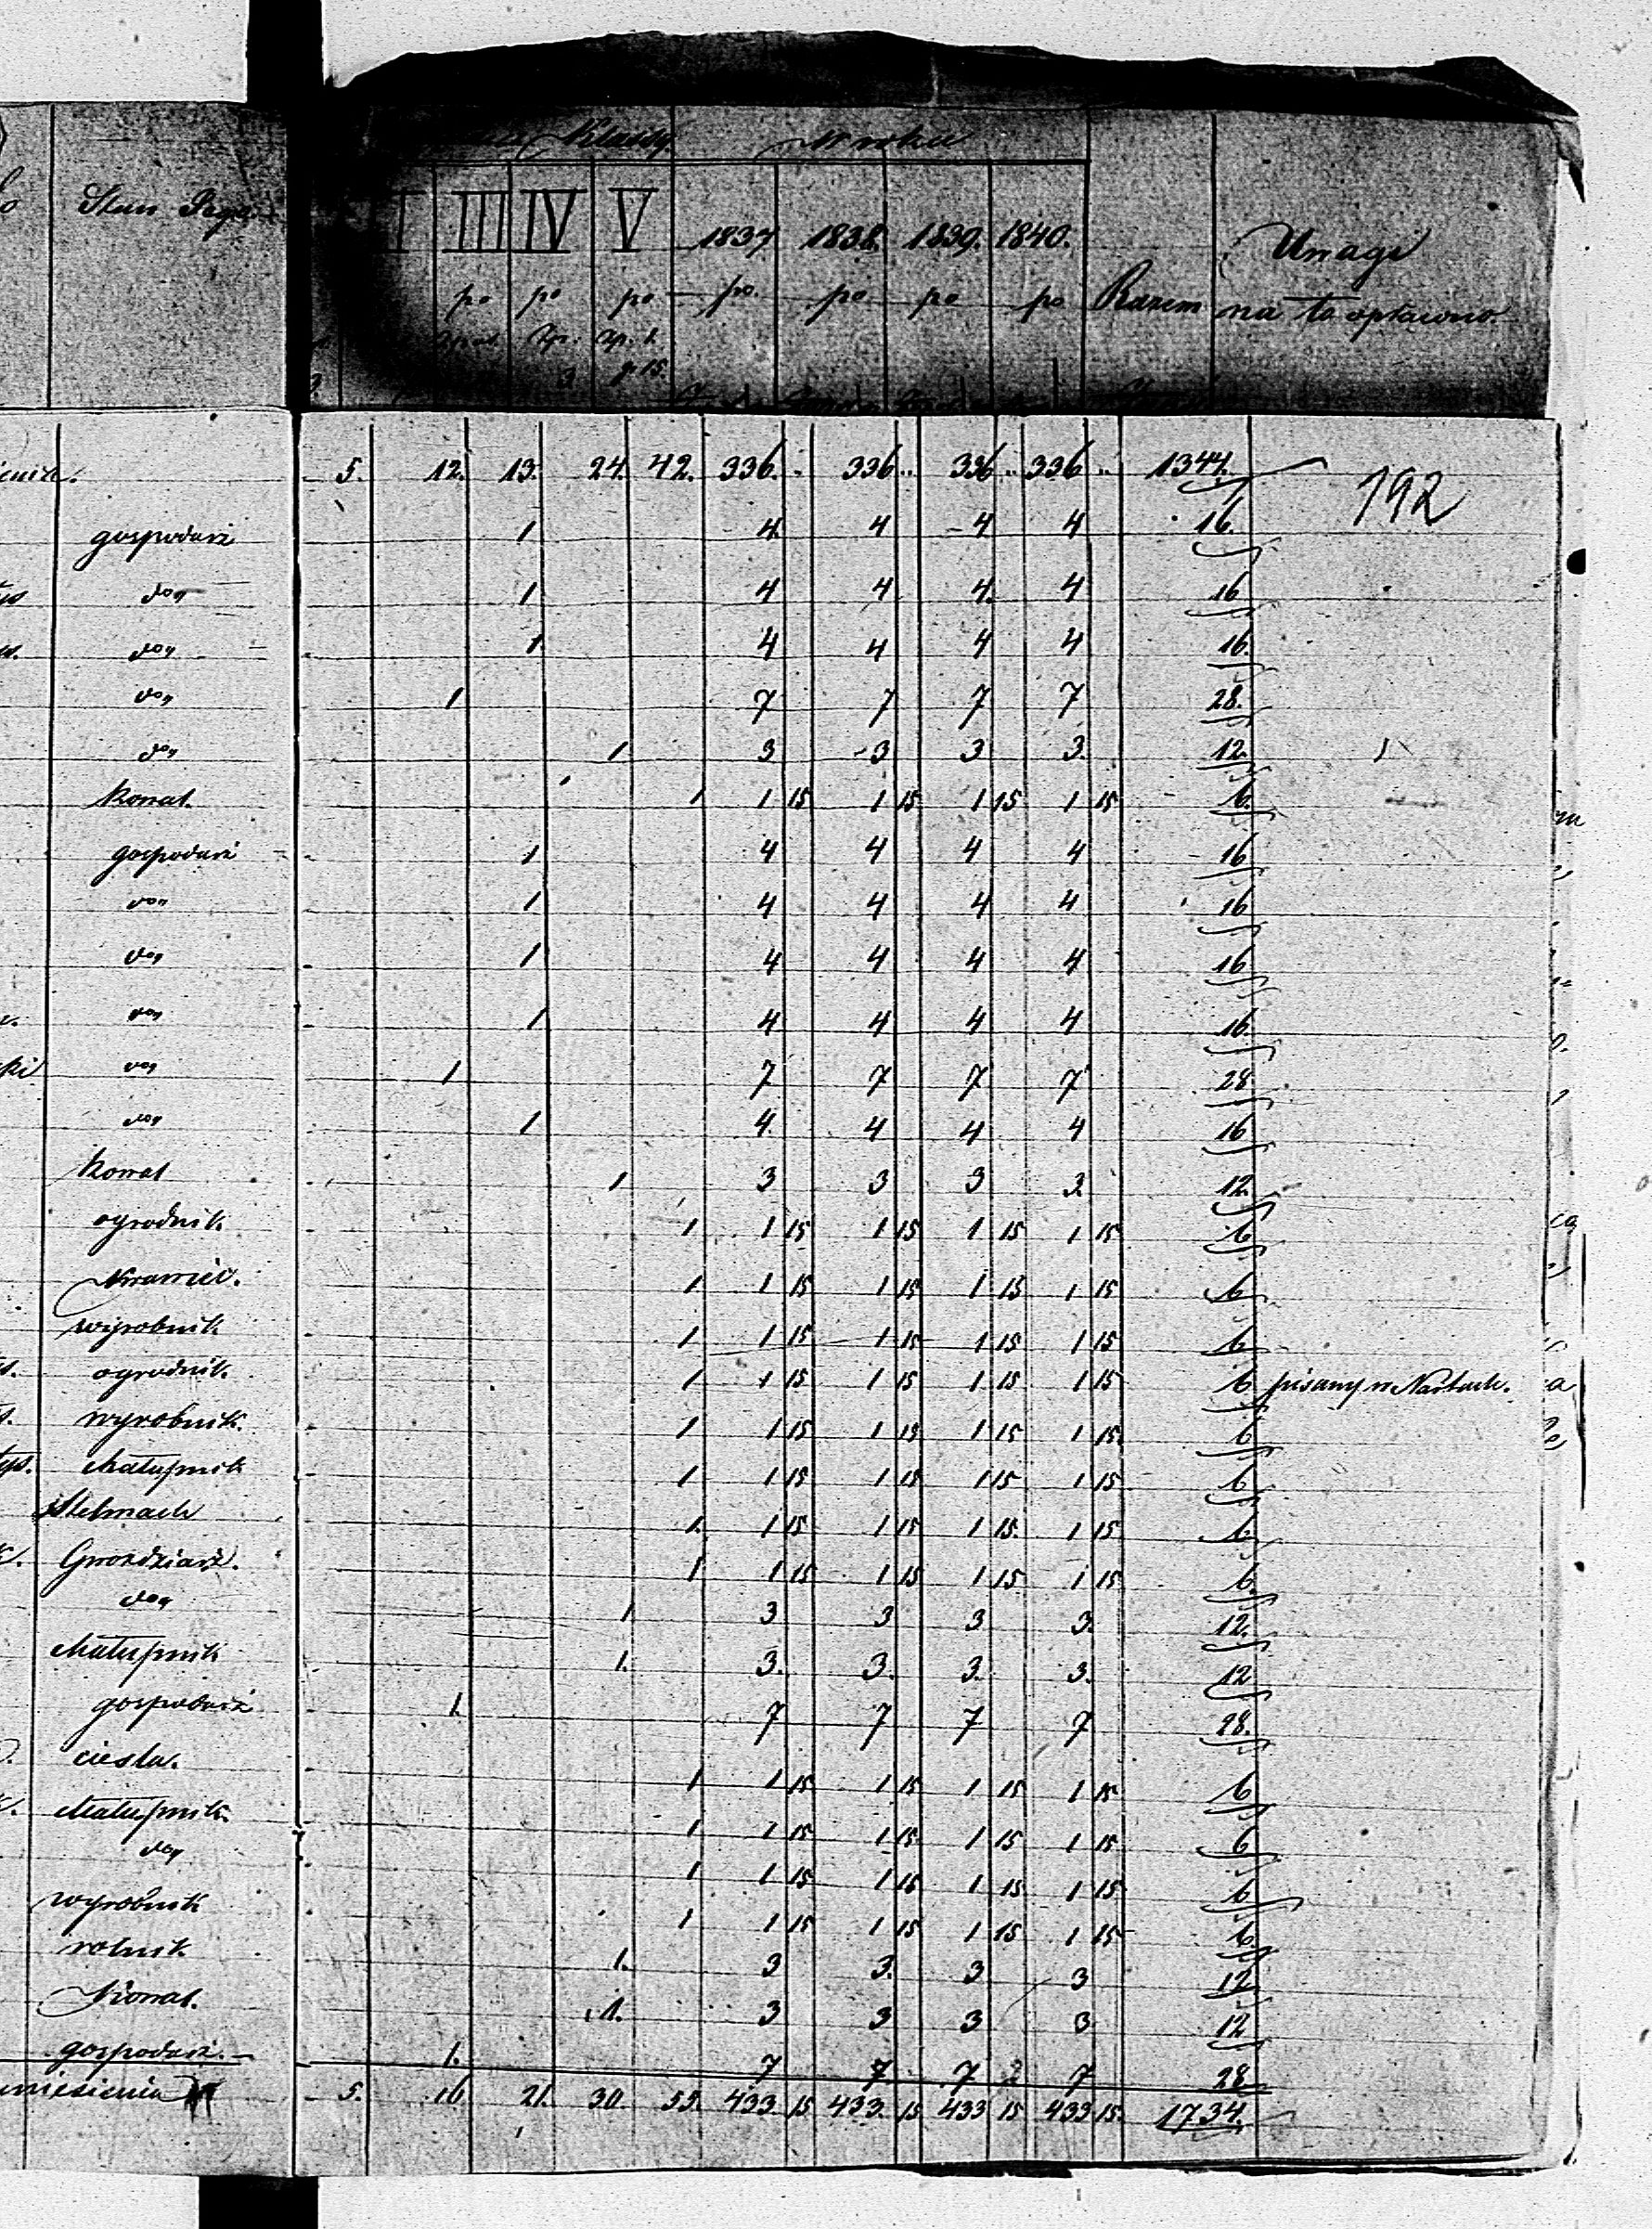 Klassy W roku
Stan
III IV V 1837 1838. 1839. 1840. Uwagi
po po po po. po po po Razem na to opłacono
Zp. Zp. 1.
3 gr 15.
5. 12. 13. 24. 42. 336. .. 336 .. 336 .. 336 .. 1344. 192
gospodarz 1 4. 4 4 4 16.
do„ 1 4 4 4. 4 16
do„ 1 4 4 4 4 16.
do„ 1 7 7 7 7 28.
do„ 1 3 3 3 3. 12.
Kowal. 1 1 15 1 15 1 15 1 15 6.
gospodarz 1 4 4 4 4 16
do„ 1 4 4 4 4 16
do„ 1 4 4 4 4 16
do„ 1 4 4 4 4 16.
do„ 1 7 7 7 7 28.
do„ 1 4. 4 4 4 16
Kowal 1 3 3 3 3 12.
ogrodnik 1 1 15 1 15 1 15 1 15 6
Krawiec. 1 1 15 1 15 1 15 1 15 6
wyrobnik 1 1 15 1 15 1 15 1 15 6
ogrodnik. 1 1 15 1 15 1 15 1 15 6 pisany w
wyrobnik. 1 1 15 1 15 1 15 1 15 6
chałupnik 1 1 15 1 15 1 15 1 15 6
Stelmach 1. 1 15 1 15 1 15 1 15 6
Gwoździarz. 1 1 15 1 15 1 15 1 15 6.
do„ 1 3 3 3 3. 12.
chałupnik 1. 3. 3. 3. 3. 12
gospodarz 1. 7 7 7 7 28.
cieśla. 1 1 15 1 15 1 15 1 15 6
chałupnik. 1 1 15 1 15 1 15 1 15 6
do„ 1 1 15 1 15 1 15 1 15 6
wyrobnik 1 1 15 1 15 1 15 1 15 6.
rolnik 1. 3 3. 3 3 12
Kowal. 1. 3 3 3 3 12
gospodarz. 1. 7 7 7 7 28
5. 16 21. 30. 55. 433 15 433. 15 433 15 433 15. 1734.